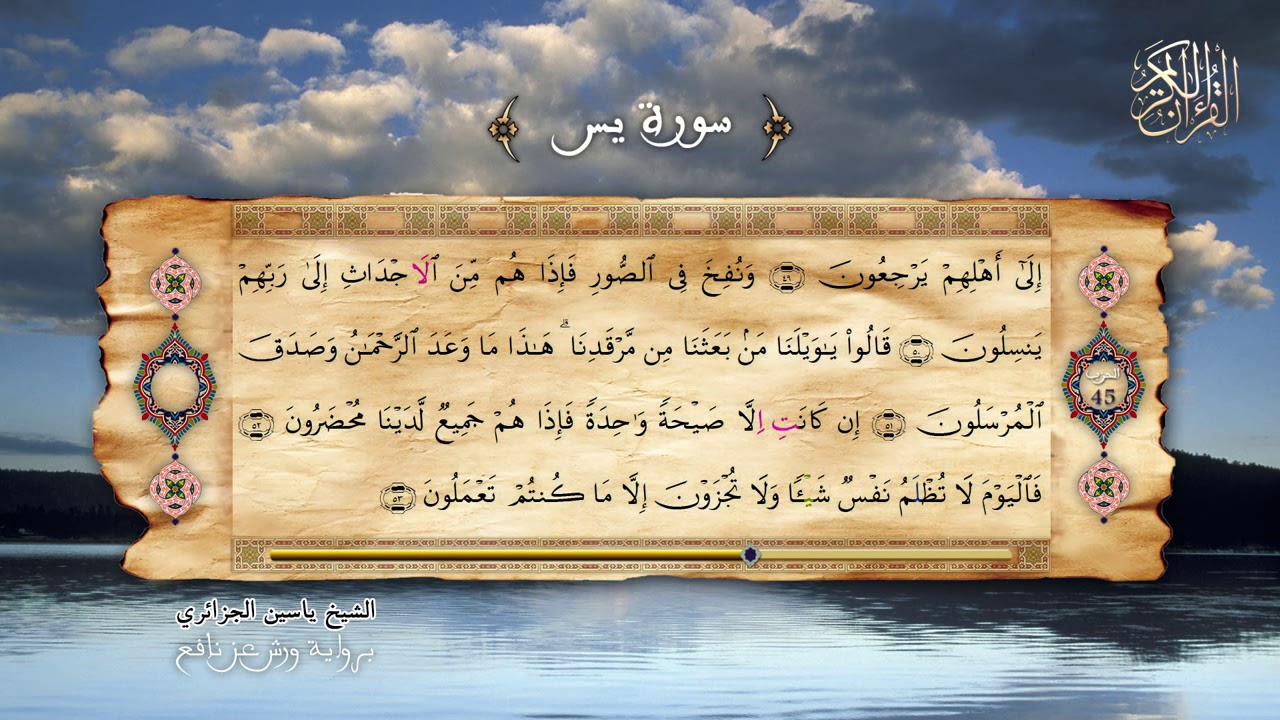 القرآن الكريم
سورة يس
إِلَىٰٓ أَهْلِهِمْ يَرْجِعُونَ ٤٩ وَنُفِخَ فِى ٱلصُّورِ فَإِذَا هُم مِّنَ ٱلَاجْدَاثِ إِلَىٰ رَبِّهِمْ
يَنسِلُونَ ٥٠ قَالُواْ يَٰوَيْلَنَا مَنۢ بَعَثَنَا مِن مَّرْقَدِنَا ۖ هَٰذَا مَا وَعَدَ ٱلرَّحْمَٰنُ وَصَدَقَ
ٱلْمُرْسَلُونَ ٥١ إِن كَانَتِ اِلَّا صَيْحَةٗ وَٰحِدَةٗ فَإِذَا هُمْ جَمِيعٞ لَّدَيْنَا مُحْضَرُونَ ٥٢
فَالْيَوْمَ لَا تُظْلَمُ نَفْسٞ شَيْـٔٗا وَلَا تُجْزَوْنَ إِلَّا مَا كُنتُمْ تَعْمَلُونَ ٥٣
الحزب
45
الشيخ ياسين الجزائري
برواية ورش عن نافع